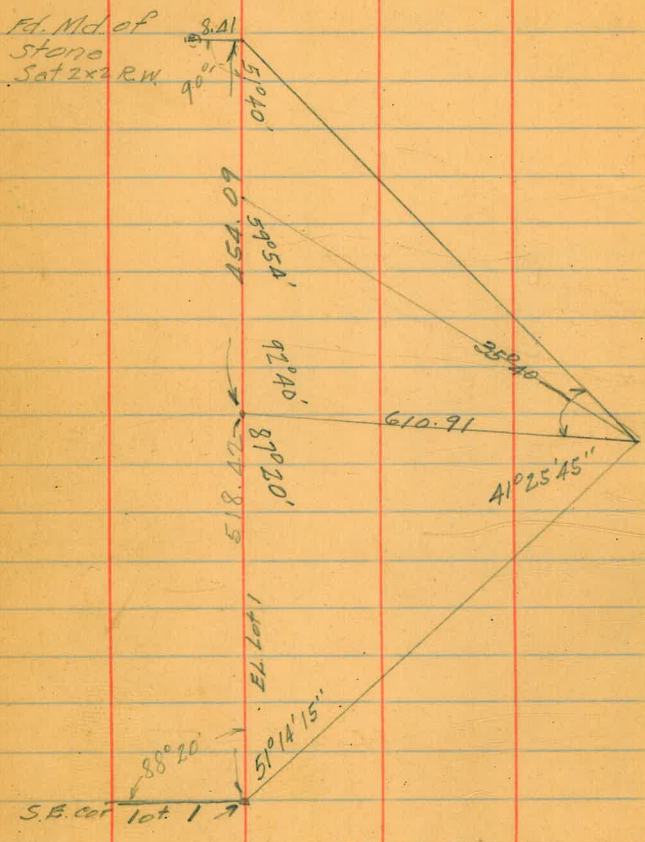 Fd. Md of
stone
Sat 2x2 R.W.
8.41
90°1'
51°40'
454.09
59°54'
92°40'
35°40
610.91
87°20'
518.42
41°25'45"
EL Lot 1
51°14'15"
88°20'
S.E. cor lot 1